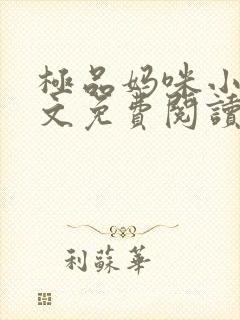 極品妈咪小
文免費閱讀
利蘇華